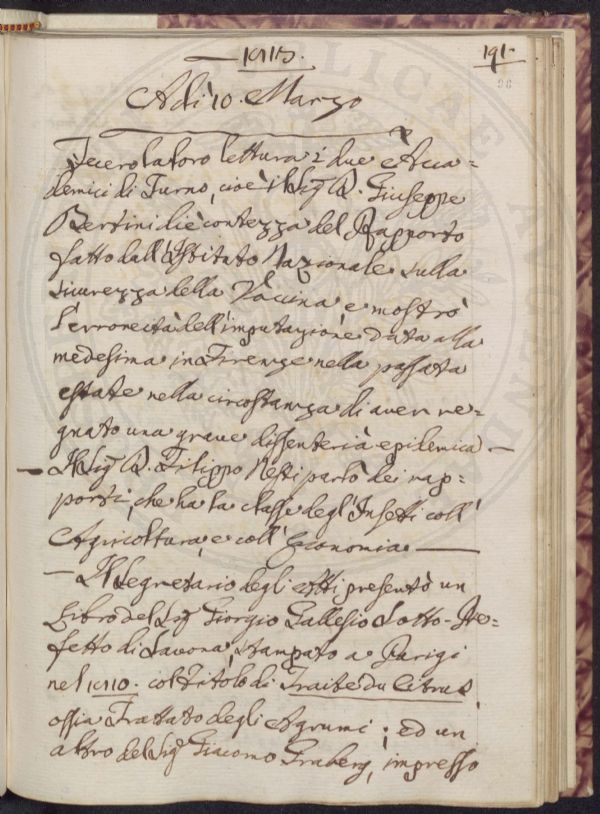 1813. 191.
96
Adì 10. Marzo
Fecero la loro lettura i due Acca=
demici di Turno, cioè il Sig. D. Giuseppe
Bertini diè contezza del Rapporto
fatto dall'Istituto Nazionale sulla
sicurezza della Vaccina, e mostrò
l'erroneità dell'imputazione data alla
medesima in Firenze nella passata
estate nella circostanza di aver re=
gnato una grave dissenteria epidemica —
— Il Sig. D. Filippo Nesti parlò dei rap=
porti, che ha la classe degl'Insetti coll'
Agricoltura, e coll'Economia —
— Il Segretario degli Atti presentò un
Libro del Sig. Giorgio Gallesio Sotto-Pre=
fetto di Savona, stampato a Parigi
nel 1811. col Titolo di Traité du Citrus,
ossia Trattato degli Agrumi; ed un
altro del Sig. Giacomo Graberg, impresso